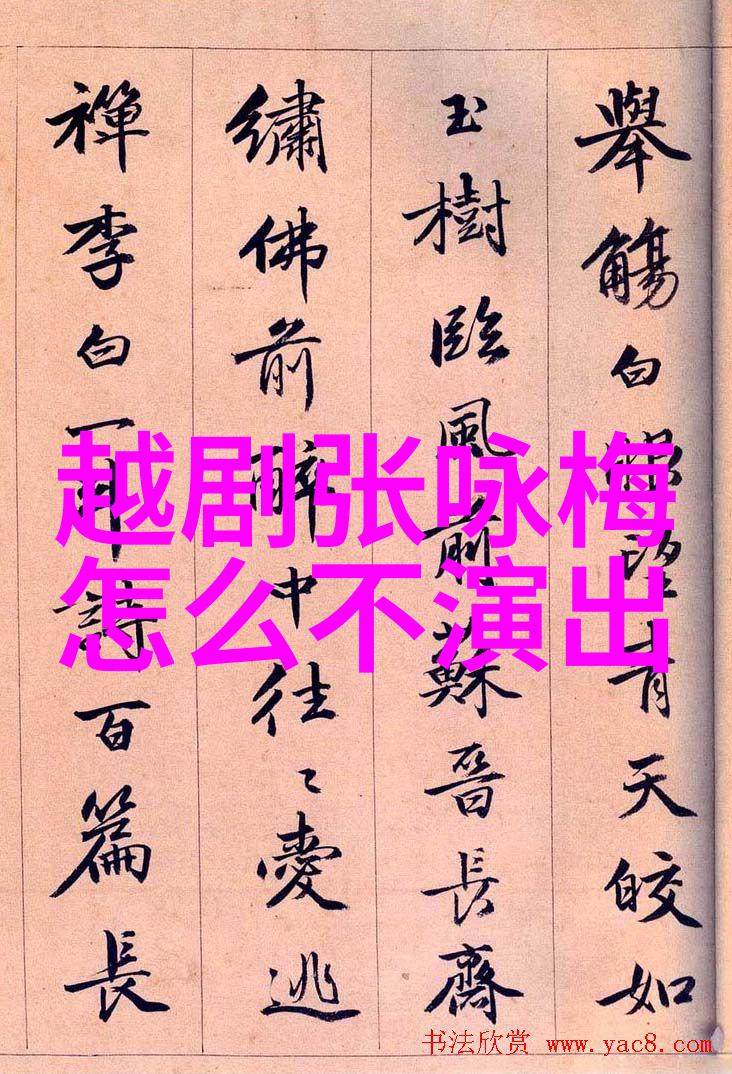 舉觴白眼望青天皎如
玉樹臨風前蘇晉長齋
繡佛前醉中往々愛逃
禪李白一斗詩百篇長
越剧张咏梅
怎么不演出
书法欣赏 www.yac8.com